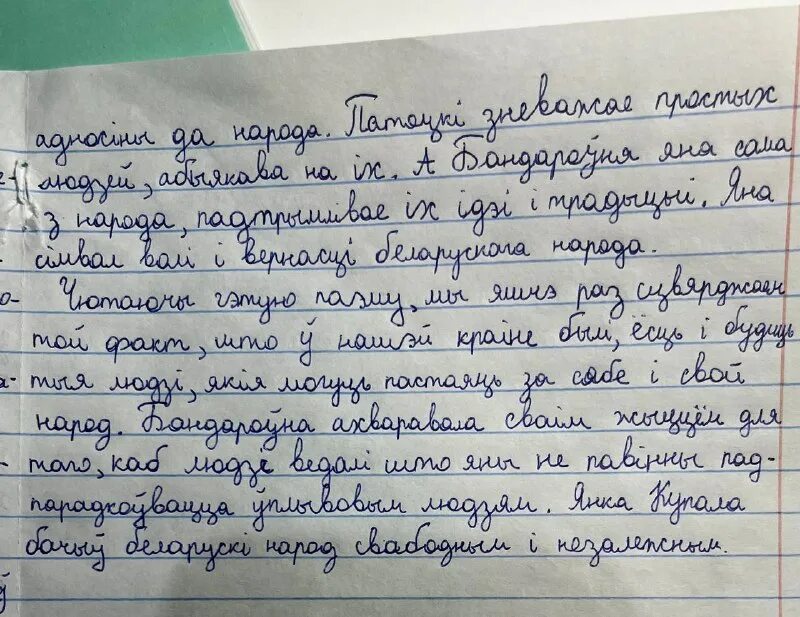 адносіны да народа. Патоцкі зневажае простых
людзей, абыякава на іх. А Бандароўня яна сама
з народа, падтрымлівае іх ідэі і традыцыі. Яна
сімвал волі і вернасці беларускага народа.
Чытаючы гэтую паэму, мы яшчэ раз сцвярджаем
той факт, што ў нашэй краіне былі, ёсць і будуць
тыя людзі, якія могуць пастаяць за сябе і свой
народ. Бандароўна ахваравала сваім жыццём для
таго, каб людзі ведалі што яны не павінны пад-
парадкоўвацца ўплывовым людзям. Янка Купала
бачыў беларускі народ свабодным і незалежным.